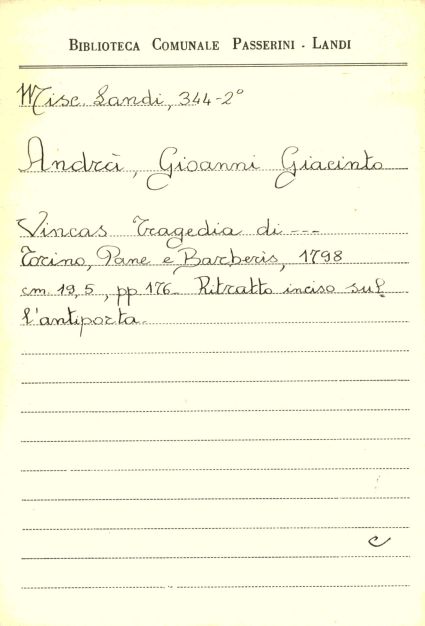 BIBLIOTECA COMUNALE PASSERINI - LANDI
Misc. Landi, 344-2°
Andrà, Giovanni Giacinto
Vincas Tragedia di ---
Torino, Pane e Barberis, 1798
cm. 19,5, pp. 176. Ritratto inciso sul=
l'antiporta.
c